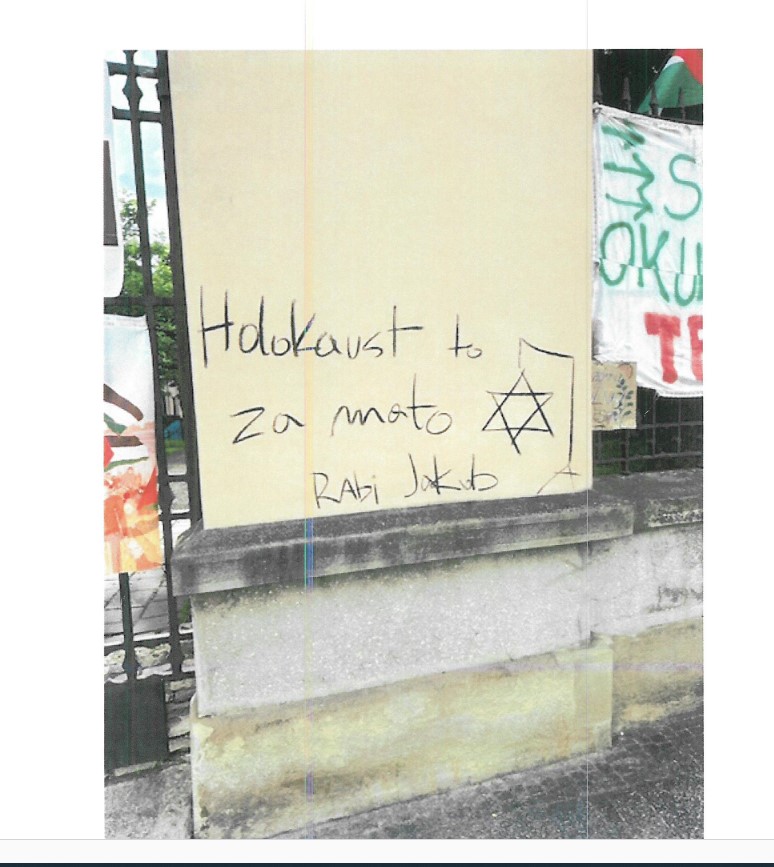 Holokaust to
za mato
RAbi Jakub
S
OKU
TE